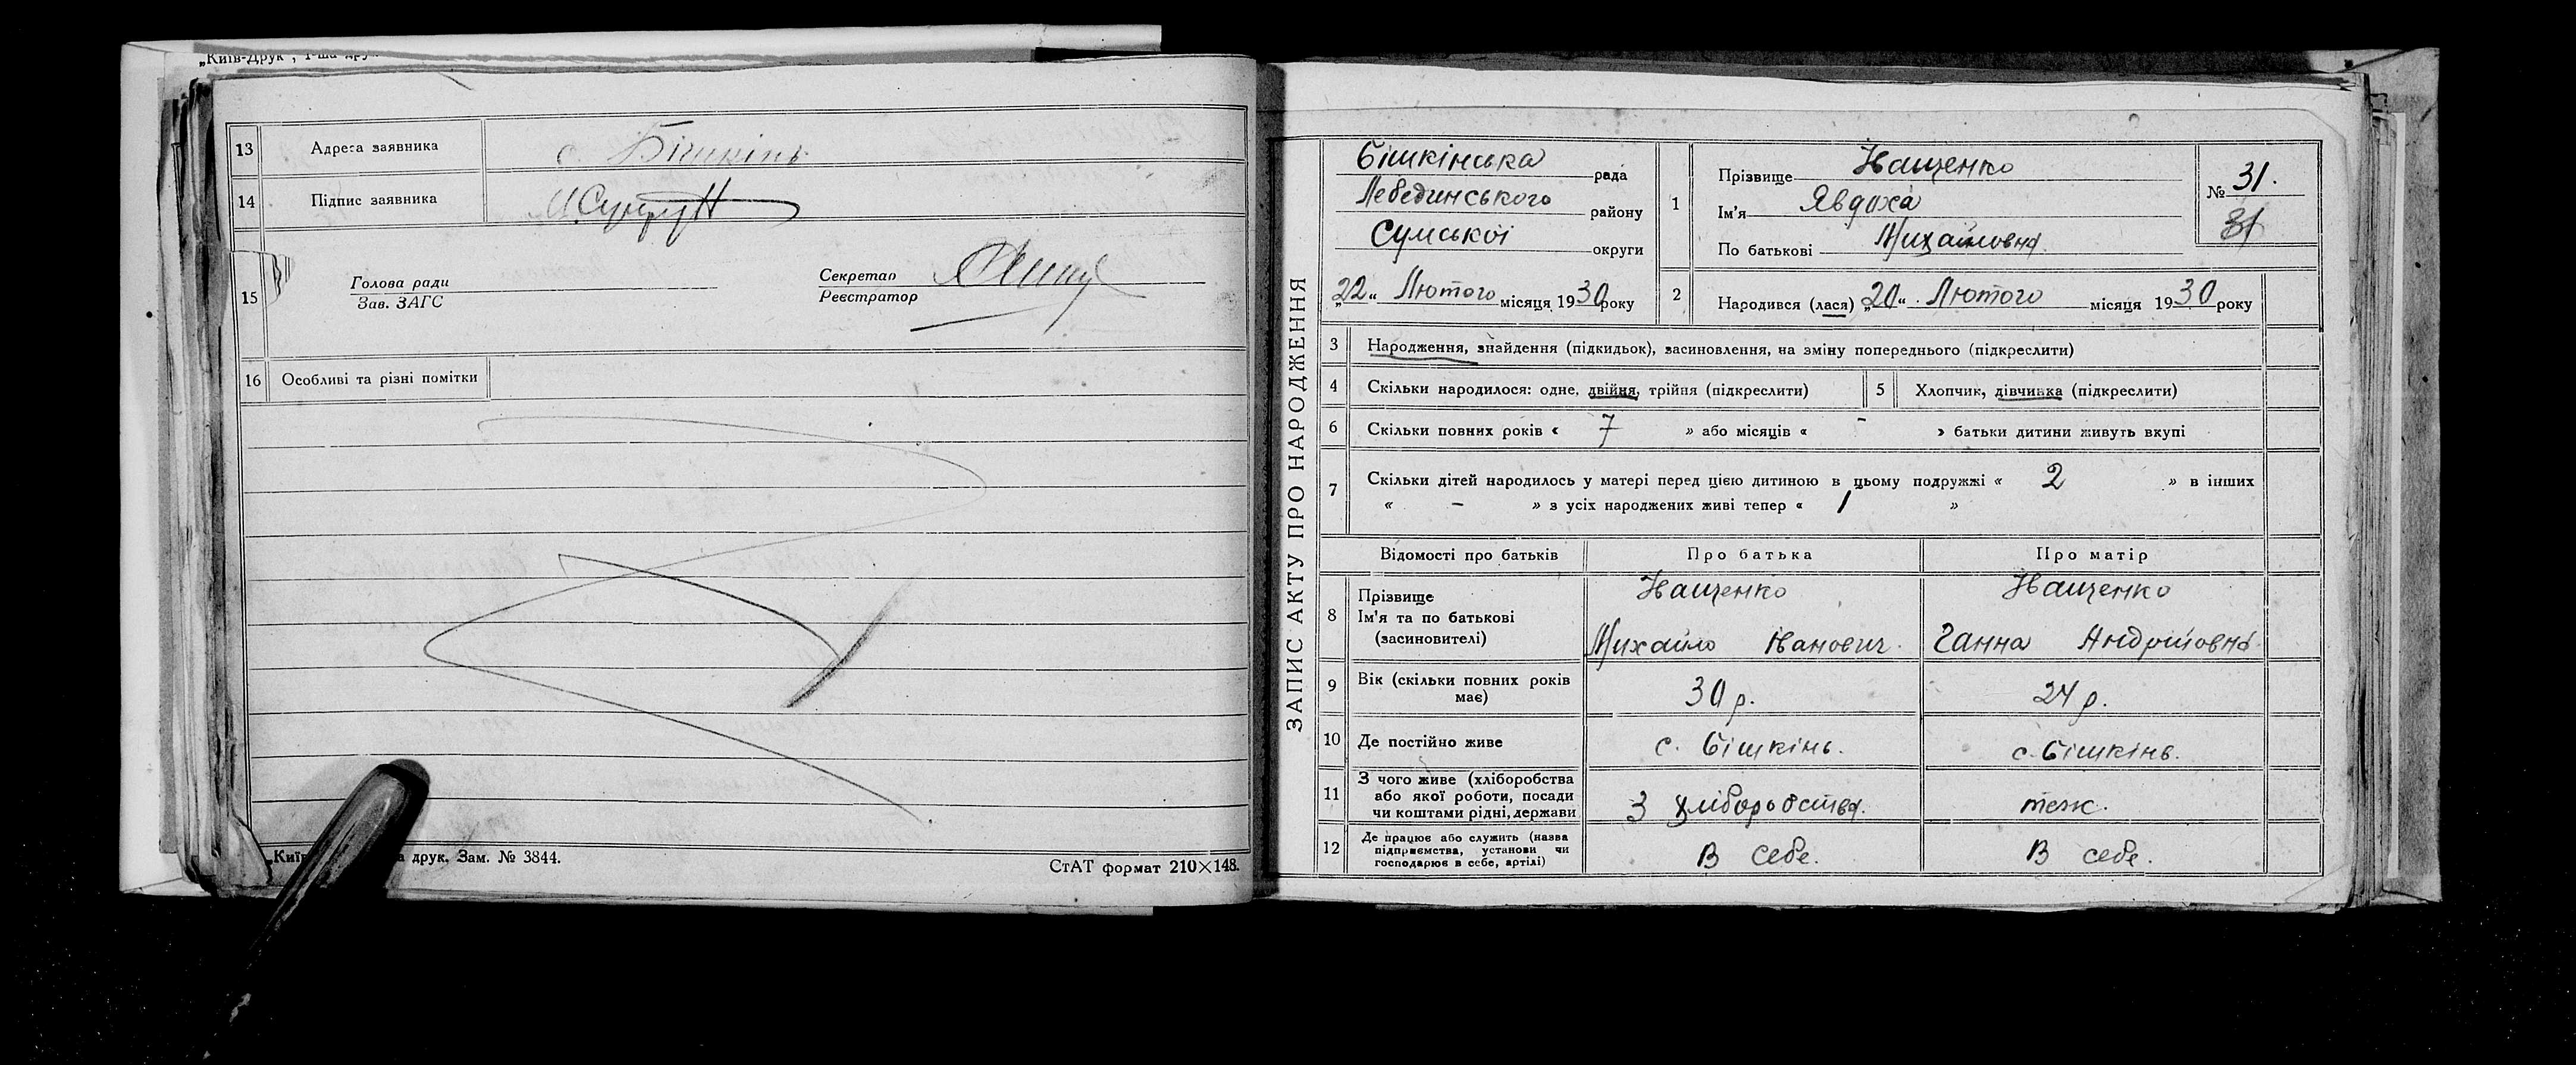 „Київ-Друк“, 1-ша дру
13 Адреса заявника с. Бішкінь
14 Підпис заявника
15 Голова ради Секретар
Зав. ЗАГС Реєстратор
16 Особливі та різні помітки
„Київ а друк. Зам. № 3844.
СтАТ формат 210×148.
ЗАПИС АКТУ ПРО НАРОДЖЕННЯ
Бішкінська рада
Лебединського району
Сумської округи
„22“ Лютого місяця 1930 року
1 Прізвище Іващенко
Ім'я Явдоха
По батькові Михайловна
№ 31.
31
2 Народився (лася) „20“ Лютого місяця 1930 року
3 Народження, знайдення (підкидьок), засиновлення, на зміну попереднього (підкреслити)
4 Скільки народилося: одне, двійня, трійня (підкреслити) 5 Хлопчик, дівчинка (підкреслити)
6 Скільки повних років « 7 » або місяців « - » батьки дитини живуть вкупі
7 Скільки дітей народилось у матері перед цією дитиною в цьому подружжі « 2 » в інших
« - » з усіх народжених живі тепер « 1 »
Відомості про батьків Про батька Про матір
8 Прізвище Іващенко Іващенко
Ім'я та по батькові
(засиновителі) Михайло Іванович. Ганна Андрійовна.
9 Вік (скільки повних років має) 30 р. 24 р.
10 Де постійно живе с. Бішкінь. с. Бішкінь.
11 З чого живе (хліборобства
або якої роботи, посади
чи коштами рідні, держави З хліборобства. теж.
12 Де працює або служить (назва
підприємства, установи чи
господарює в себе, артілі) В себе. В себе.